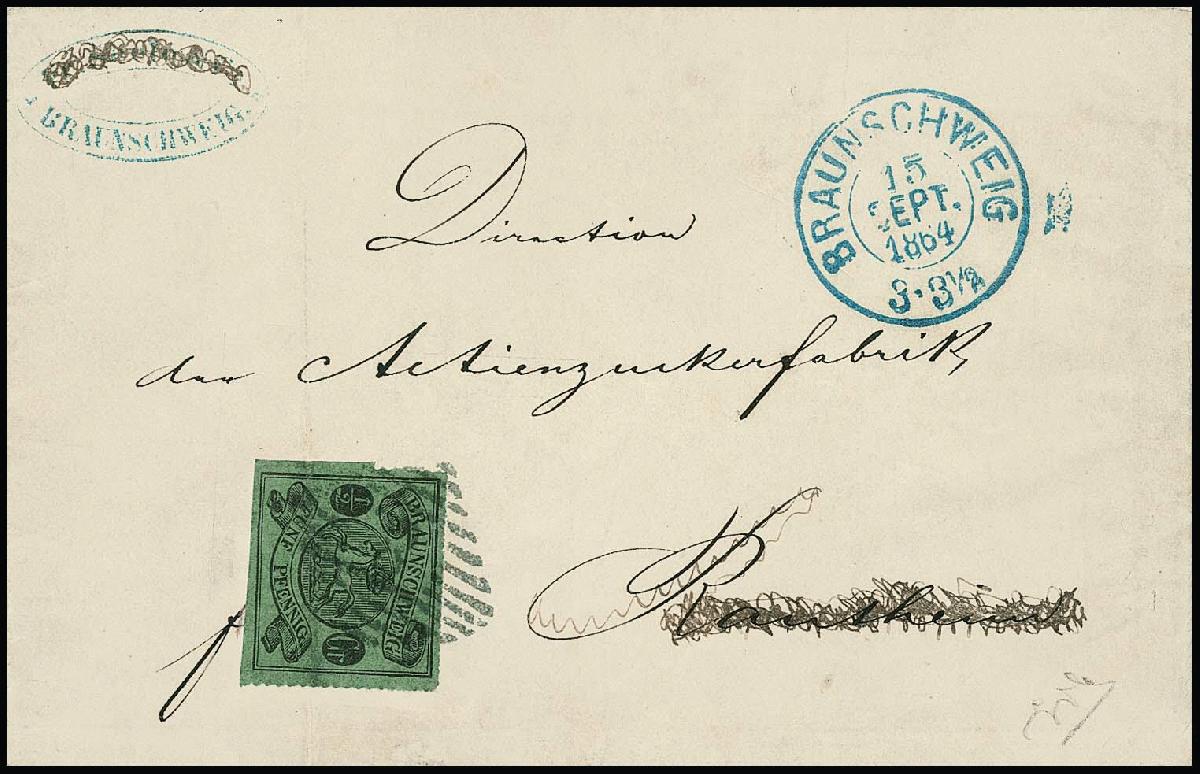 BRAUNSCHWEIG.
BRAUNSCHWEIG
15
SEPT.
1864
3-3½
Direction
der Actienzuckerfabrik,
BRAUNSCHWEIG
½ Gr
FÜNF PFENNIGE
f
Rautheim